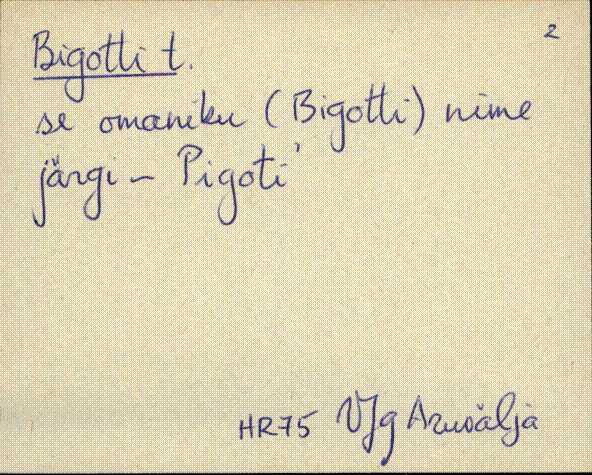 2
Bigotti t.
se omaniku (Bigotti) nime
järgi – Pigoti'
HR75 VJg Aruvälja